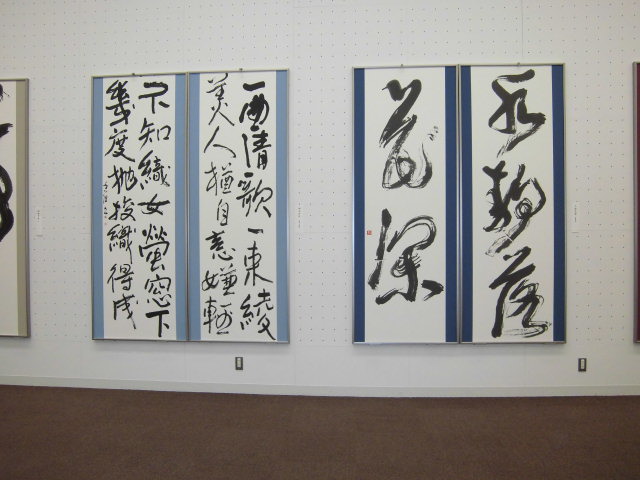 水静落
花深
一曲清歌一束綾
美人猶自意嫌軽
不知織女螢窓下
幾度抛梭織得成